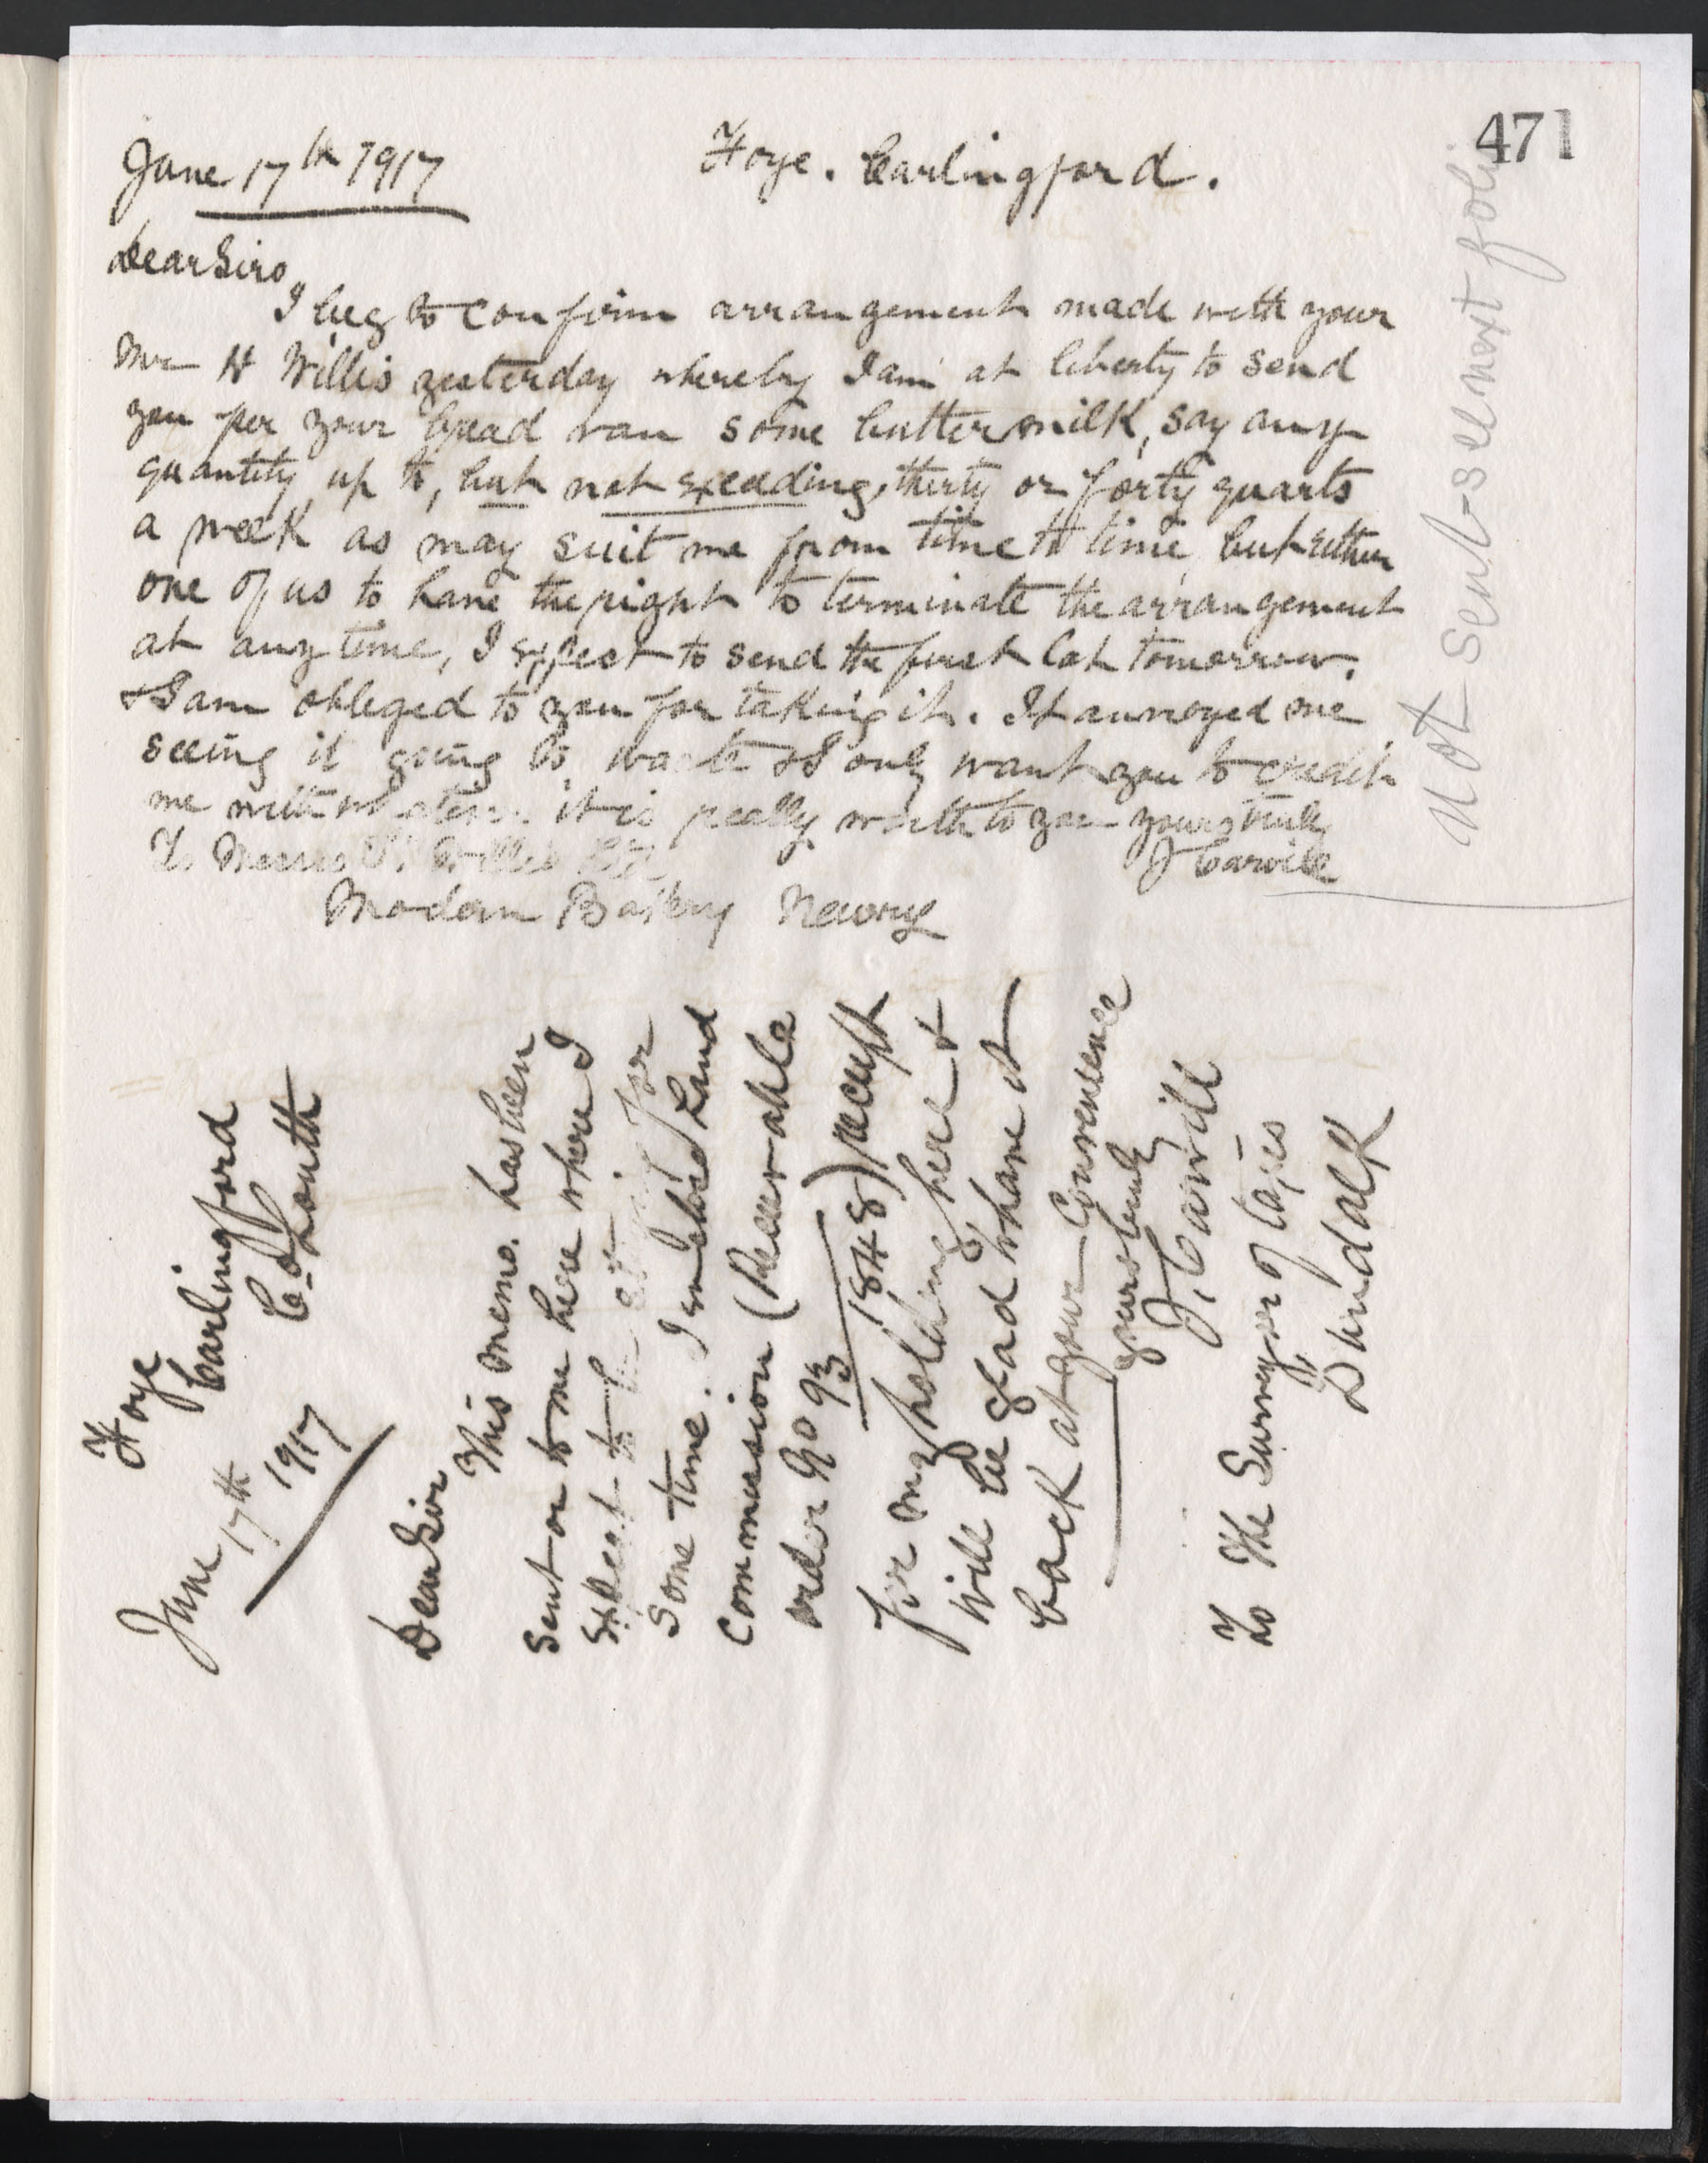 471
June 17th 1917 Foye. Carlingford.
Dear Sirs,
I beg to confirm arrangement made with your
Mr H Willis yesterday whereby I am at liberty to send
you per your bread van some buttermilk, say any
quantity up to, but not exceeding, thirty or forty quarts
a week as may suit me from time to time, but either
one of us to have the right to terminate the arrangement
at any time, I expect to send the first lot tomorrow.
& I am obliged to you for taking it. It annoyed me
seeing it going to waste & I only want you to credit
me with it is really worth to you yours truly
To Messrs Willis J Carvill
Modern Bakery Newry
Not sent - see next folio
Foye
Carlingford
Co Louth
June 17th 1917
Dear Sir
This memo. has been
sent on to me here where I
expect to be for
some time. I enclose Land
Commission (Receivable
order No 93/3 1848) receipt
for my holding here &
will be glad to have it
back at your convenience
yours truly
J. Carvill
To The Surveyor of Taxes
Dundalk